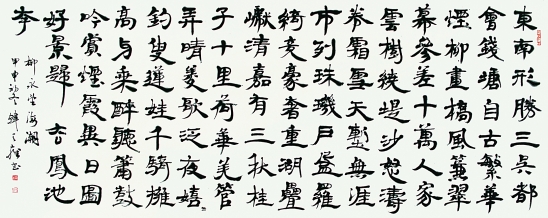 東南形勝三吳都
會錢塘自古繁華
煙柳畫橋風簾翠
幕參差十萬人家
雲樹繞堤沙怒濤
卷霜雪天塹無涯
市列珠璣戶盈羅
綺競豪奢重湖疊
巘清嘉有三秋桂
子十里荷華羌管
弄晴菱歌泛夜嬉
釣叟蓮娃千騎擁
高牙乘醉聽簫鼓
吟賞煙霞異日圖
好景歸去鳳池
夸
柳永望海潮
甲申初冬書